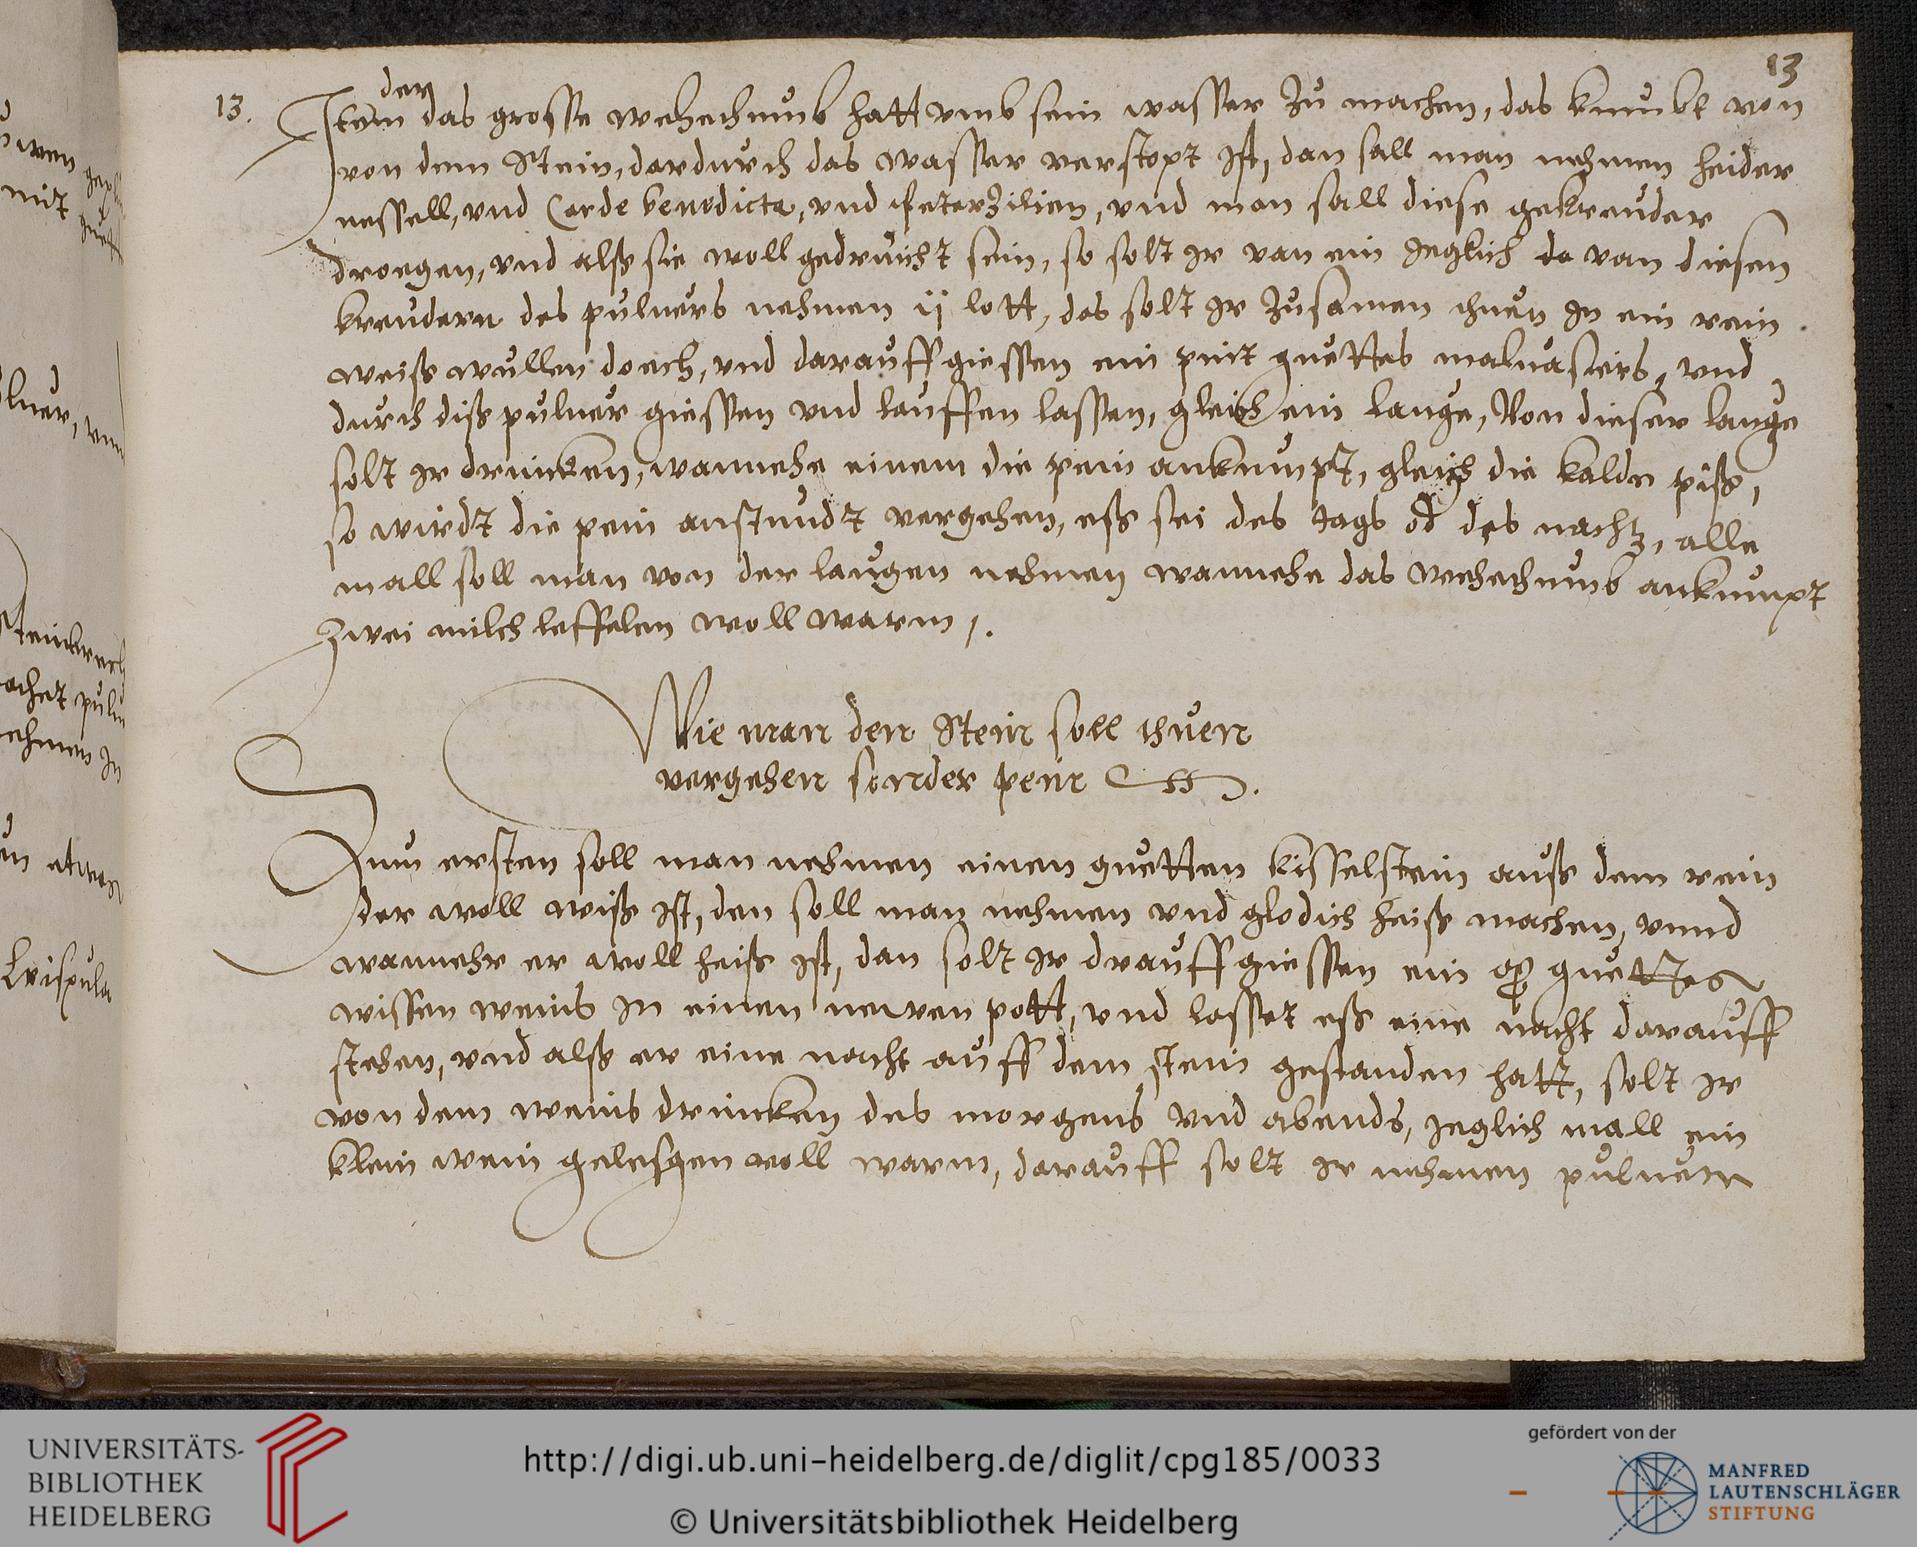 13
der
13. Item das grosse wehechnus hatt vmb sein wasser zu machen, das kumbt von
von dem Stein, dardurch das wasser verstopt ist, dan sall man nehmen heider
nessell, vnd Carde benedicta, vnd peterzilien, vnd man sall diese gekreuder
droegen, vnd alß sie woll gedruicht sein, so solt ir van ein jeglich da van diesen
kreudern des puluers nehmen ij lott, das solt ir zusamen thuen in ein rein
weiß wullen doech, vnd darauff giessen ein pint guettes maluasiers, vnd
durch diß puluer giessen vnd lauffen lassen, gleich ein lauge, Von dieser lauge
solt ir drincken, wannehe einem die pein ankumpt, gleich die kalde piß,
so wirdt die pein anstundt vergehen, eß sei des tags od des nachtz, alle
mall soll man von der laugen nehmen wannehe das wehechnus ankumpt
zwei milch leffelen woll warm /.
Wie man den Stein soll thuen
vergehen sonder pein
Zum ersten soll man nehmen einen guetten kisselstein auß dem rein
der woll wiß ist, den soll man nehmen vnd glodich heiß machen, vnnd
wannehr er woll heiß ist, dan solt ir drauff giessen ein guettes
wissen weins in einen newen pott, vnd lasset eß eine nacht darauff
stehen, vnd alß er eine nacht auff dem stein gestanden hatt, solt ir
von dem weins drincken des morgens vnd abends, jeglich mall ein
klein wein gelesgen woll warm, darauff solt ir nehmen puluern
UNIVERSITÄTS-
BIBLIOTHEK
HEIDELBERG
http://digi.ub.uni-heidelberg.de/diglit/cpg185/0033
© Universitätsbibliothek Heidelberg
gefördert von der
MANFRED
LAUTENSCHLÄGER
STIFTUNG